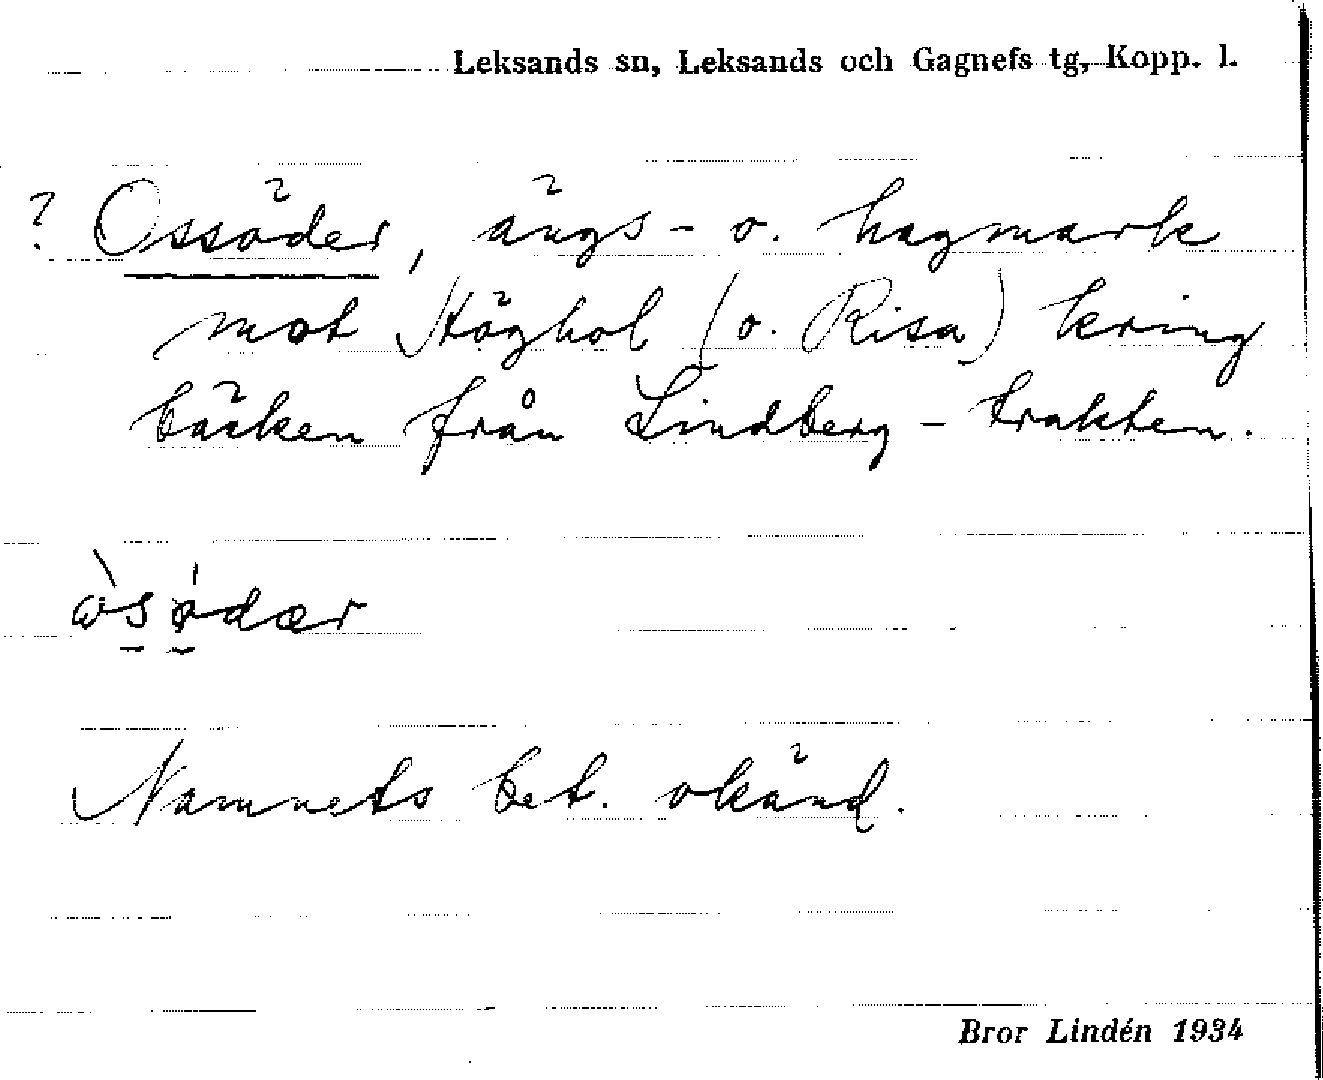 Leksands sn, Leksands och Gagnefs tg, Kopp. l.
? Ossöder, ängs- o. hagmark
mot Höghol (o. Risa) kring
bäcken från Lindberg-trakten.
Namnets bet. okänd.
Bror Lindén 1934